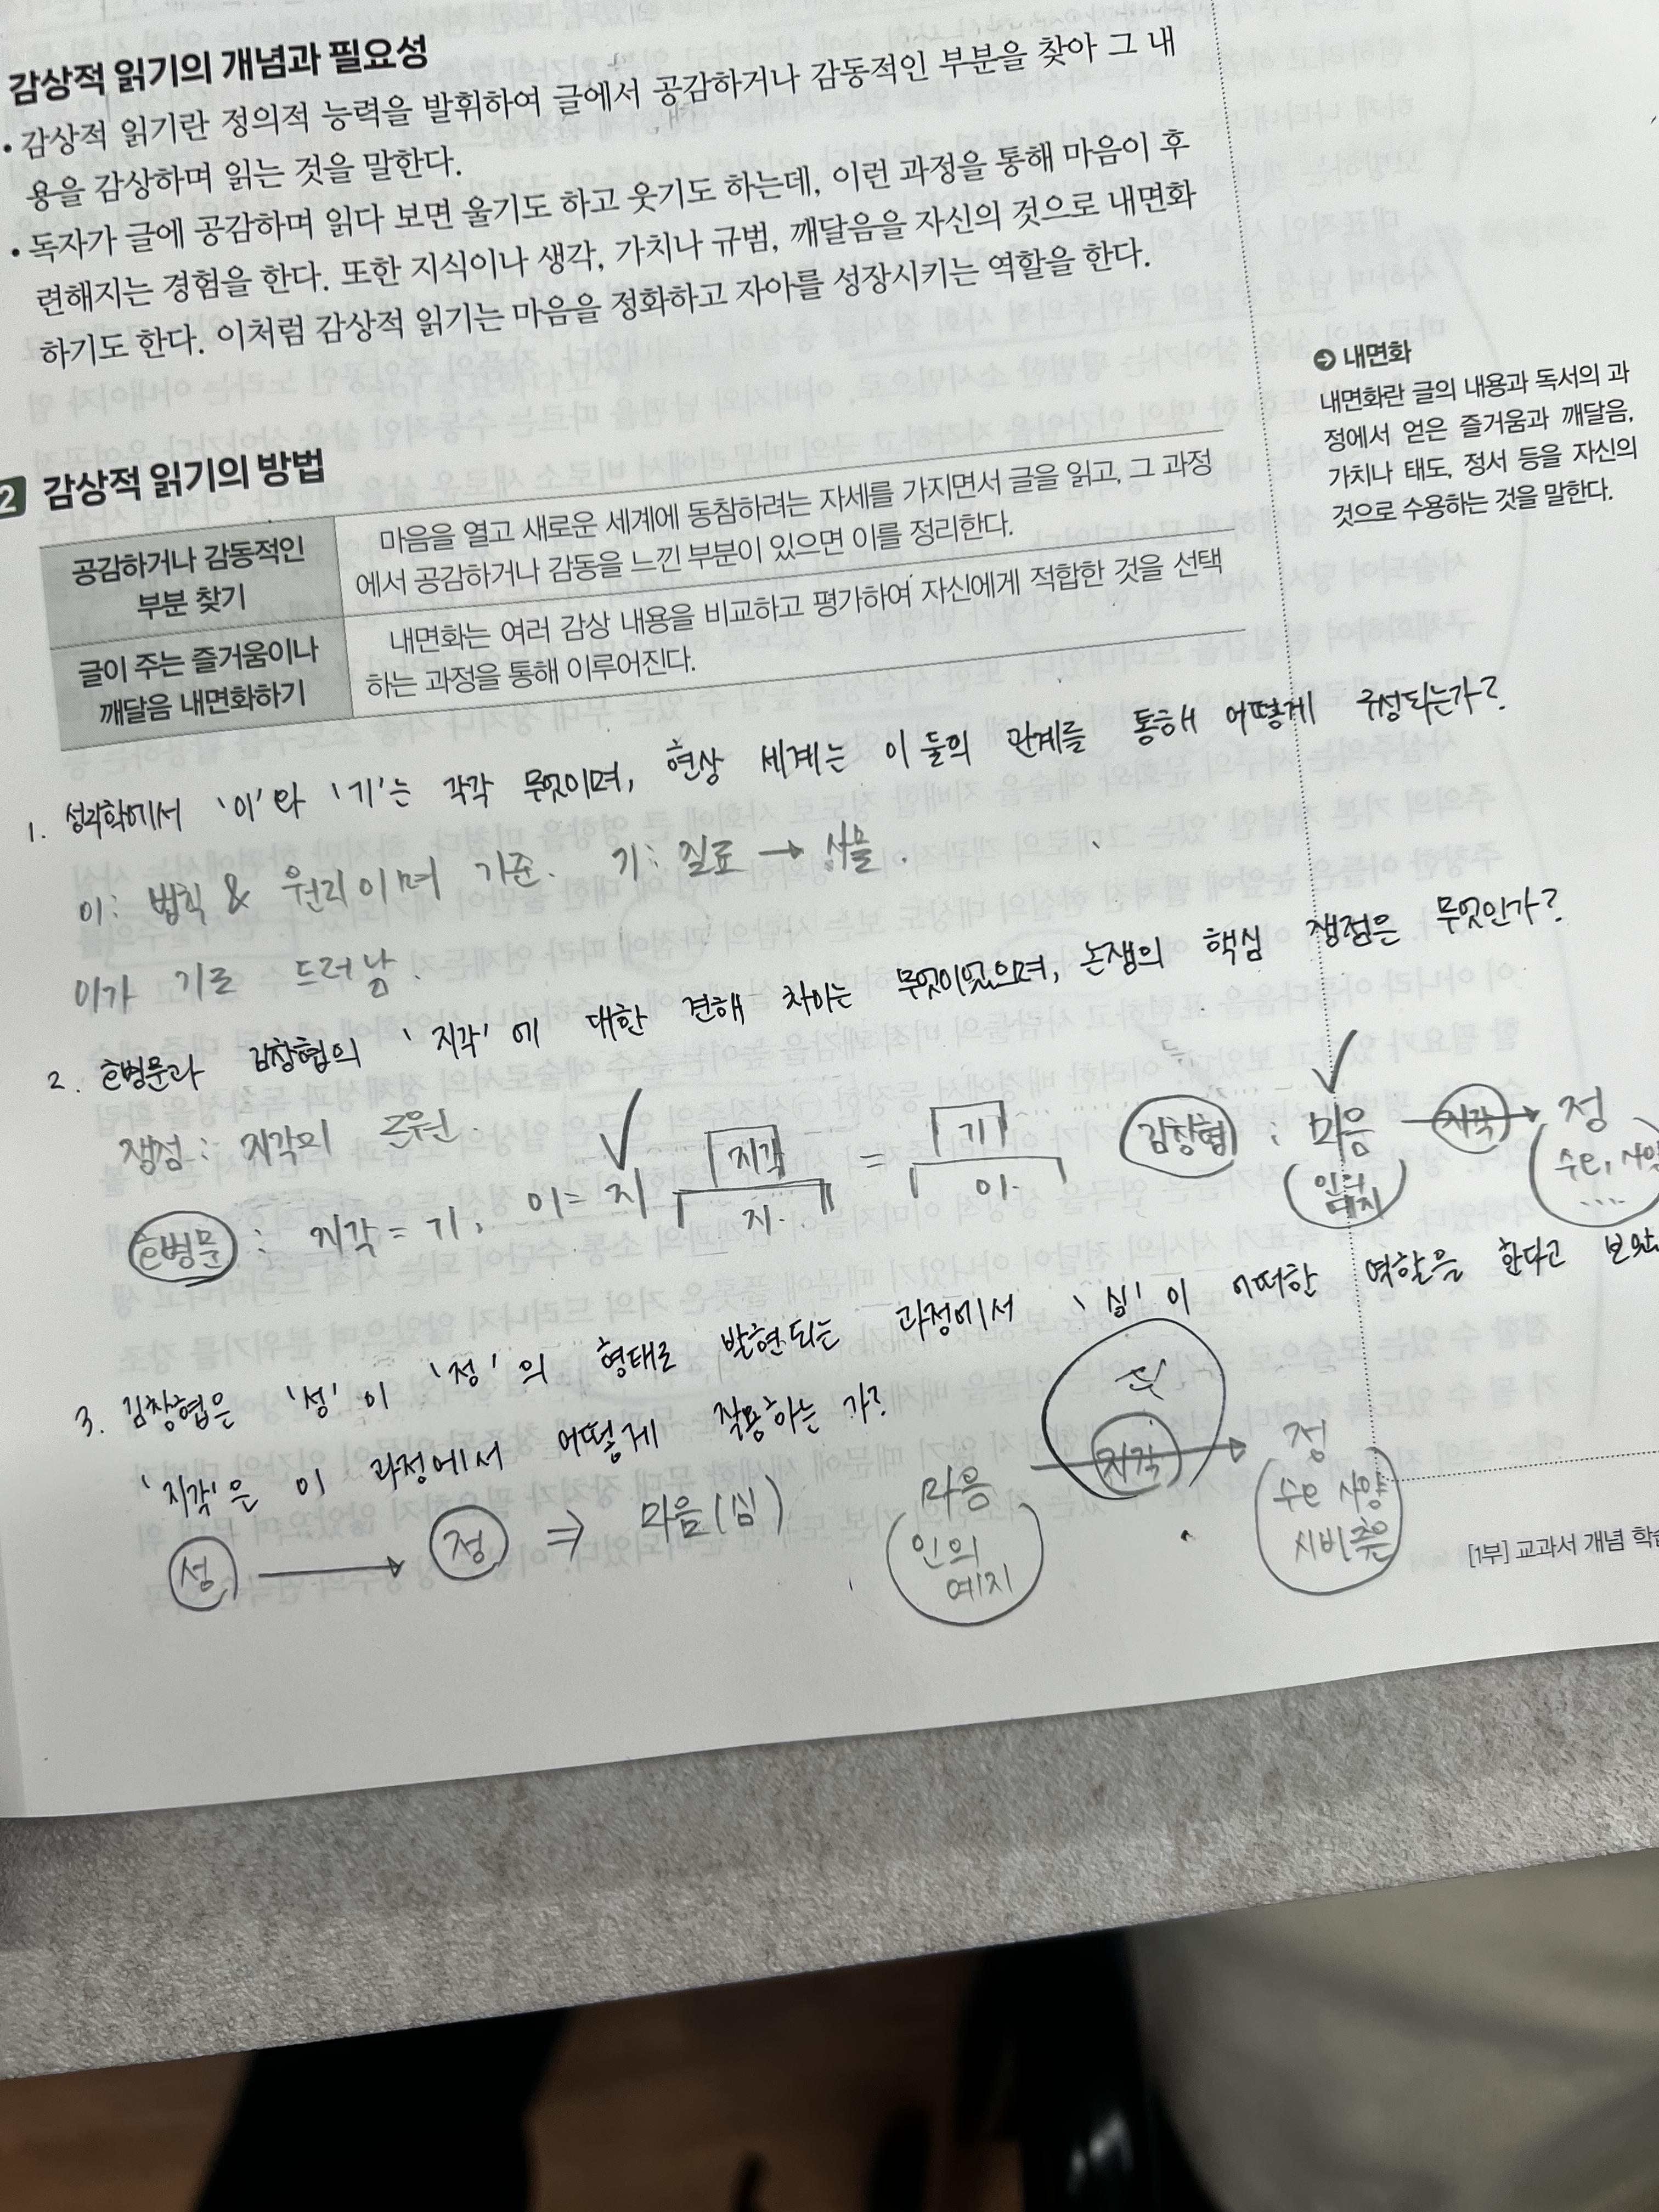 감상적 읽기의 개념과 필요성
• 감상적 읽기란 정의적 능력을 발휘하여 글에서 공감하거나 감동적인 부분을 찾아 그 내
용을 감상하며 읽는 것을 말한다.
• 독자가 글에 공감하며 읽다 보면 울기도 하고 웃기도 하는데, 이런 과정을 통해 마음이 후
련해지는 경험을 한다. 또한 지식이나 생각, 가치나 규범, 깨달음을 자신의 것으로 내면화
하기도 한다. 이처럼 감상적 읽기는 마음을 정화하고 자아를 성장시키는 역할을 한다.
내면화
내면화란 글의 내용과 독서의 과
정에서 얻은 즐거움과 깨달음,
가치나 태도, 정서 등을 자신의
것으로 수용하는 것을 말한다.
2 감상적 읽기의 방법
공감하거나 감동적인
부분 찾기
마음을 열고 새로운 세계에 동참하려는 자세를 가지면서 글을 읽고, 그 과정
에서 공감하거나 감동을 느낀 부분이 있으면 이를 정리한다.
글이 주는 즐거움이나
깨달음 내면화하기
내면화는 여러 감상 내용을 비교하고 평가하여 자신에게 적합한 것을 선택
하는 과정을 통해 이루어진다.
1. 성리학에서 '이'와 '기'는 각각 무엇이며, 현상 세계는 이 둘의 관계를 통해 어떻게 구성되는가?
이: 법칙 & 원리이며 기준. 기: 질료 → 사물.
이가 기로 드러남.
2. 민병문과 김창협의 '지각'에 대한 견해 차이는 무엇이었으며, 논쟁의 핵심 쟁점은 무엇인가?
쟁점: 지각의 근원.
민병문: 지각 = 기, 이 = 지
지각
지.
=
기
이.
김창협: 마음 지각 → 정
인의
예지
수오, 사양
....
3. 김창협은 '성'이 '정'의 형태로 발현되는 과정에서 '심'이 어떠한 역할을 한다고 보았
'지각'은 이 과정에서 어떻게 작용하는가?
성 → 정 ⇒ 마음(심)
마음 지각 → 정
인의
예지
수오 사양
시비 측은
[1부] 교과서 개념 학습